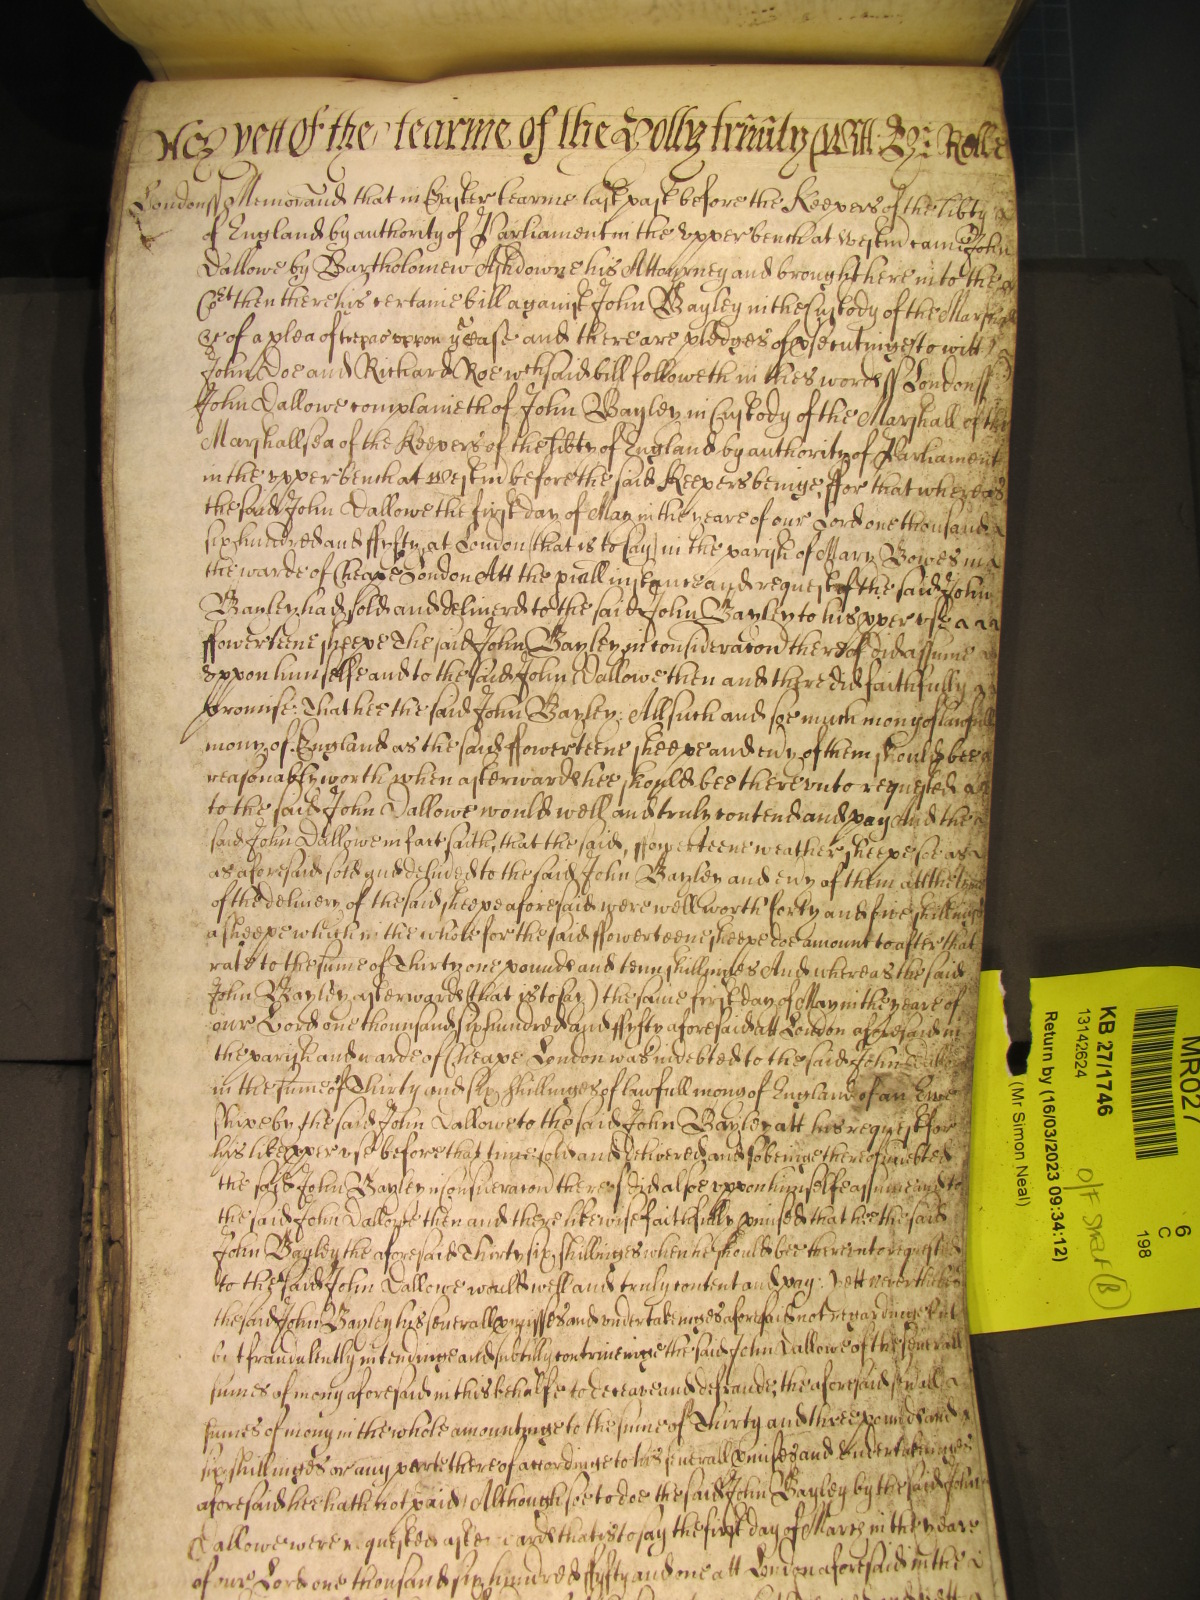 As yett of the tearme of the Holly trinity Witt: Hy: Rolle
Londonss Memorand that in Easter tearme last past before the Keepers of the libty
of England by authority of Parliament in the upper bench at Westm came John
Dallowe by Bartholomew Ashdowne his Attourney and brought here into the
Cort then there his certaine bill against John Bayley in the Custody of the Marshall
&c of a plea of trepas uppon ye case and there are pledges of psecutinge to witt
John Doe and Richard Roe wch said bill followeth in thes words ss Londonss
John Dallowe complaineth of John Bayley in Custody of the Marshall of the
Marshallsea of the Keepers of the libty of England by authority of Parliament
in the upper bench at Westm before the said Keepers beinge, ffor that whereas
the said John Dallowe the first day of May in the yeare of our Lord one thousand
six hundred and ffyfty, at London (that is to say) in the parish of Mary Bowes in
the warde of Cheape London Att the spiall instance and request of the said John
Bayley had sold and deliverd to the said John Bayley to his pper use
ffowerteene sheepe The said John Bayley in consideracon thereof did assume
uppon himselfe and to the said John Dallowe then and there did faithfully
promise: That hee the said John Bayley: All such and soe much mony of lawfull
mony of England as the said ffowerteene sheepe and evy of them should bee
reasonably worth when afterwards hee should bee thereunto requested
to the said John Dallowe would well and truly contend and pay And the
said John Dallowe in fact saith, that the said, ffowerteene weather sheepe soe as
as aforesaid sold and delivd to the said John Bayley and evy of them att the time
of the delivery of the said sheepe aforesaid were well worth forty and five shillings
a sheepe which in the whole for the said ffowerteene sheepe doe amount to after that
rate to the sume of Thirty one pounds and tenn shillinges And whereas the said
John Bayley afterwards (that is to say) the same first day of May in the yeare of
our Lord one thounsand six hundred and ffyfty aforesaid att London aforesaid in
the parish and warde of Cheape London was indebted to the said John
in the sume of Thirty and six shillinges of lawfull mony of England of an Ewe
sheepe by the said John Dallowe to the said John Bayley att his request for
his like pper use before that time sold and delivered and so beinge thereof indebted
the said John Bayley in consideracon thereof did alsoe uppon himselfe assume and to
the said John Dallowe then and there likewise faithfully pmised that hee the said
John Bayley the aforesaid Thirty six shillinges when he should bee thereunto requested
to the said John Dallowe would well and truly content and pay: yett neverthelesse
the said John Bayley his severall pmisses and undertakeinges aforesaid not regardinge
but fraudulently intendinge and subtilly contriveinge the said John Dallowe of the severall
sumes of mony aforesaid in this behalfe to deceave and defraude, the aforesaid sevall
sumes of mony in the whole amountinge to the sume of Thirty and three pounds and
six shillinges or any parte thereof accordinge to his severall pmises and undertakeinges
aforesaid hee hath not paid Although soe to doe the said John Bayley by the said John
Dallowe were requested afterwards that is to say the first day of March in the yeare
of our Lord one thousand six hundred ffyfty and one att London aforesaid in the
MR027
KB 27/1746
13142624
Return by (16/03/2023 09:34:12)
(Mr Simon Neal)
6
C
198